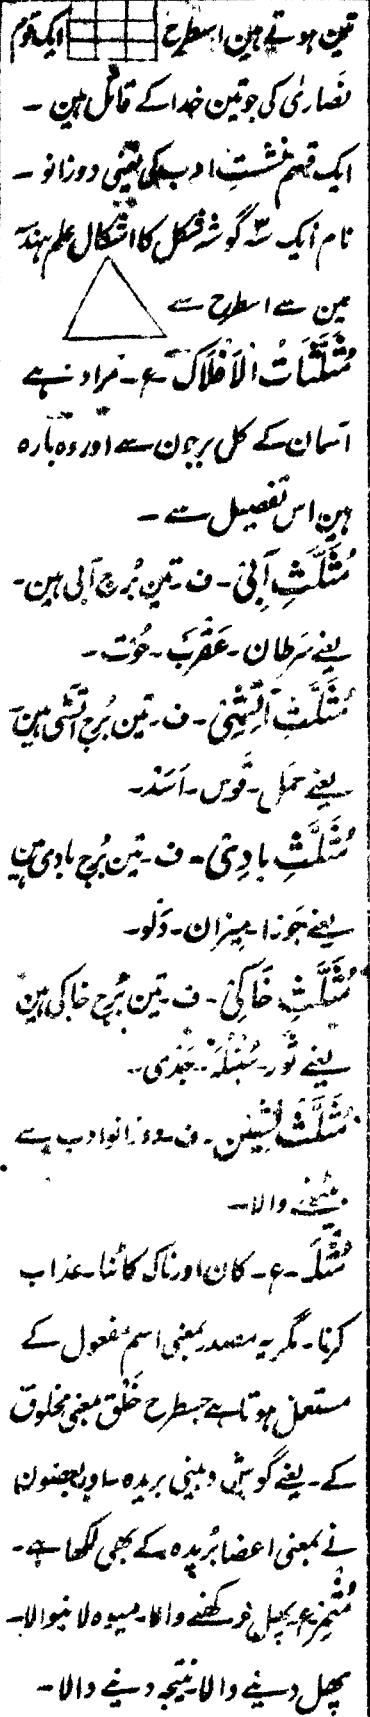 تین ہوتے ہین اسطرح ایک قوم
نصاریٰ کی جو تین خدا کے قائل ہین ۔
ایک قسم نشستِ ادب کی یعنی دوزانو ۔
نام ایک سہ گوشہ شکل کا اشکال علم ہندسہ
مین سے اسطرح سے
مُثَلَّثَاتُ الْاَفْلَاک ۔ ع ۔ مراد ہے
آسمان کے کل برجون سے اور وہ بارہ
ہین اس تفصیل سے ۔
مُثَلَّثِ آبِی ۔ ف ۔ تین بُرج آبی ہین ۔
یعنے سَرطان ۔ عَقْرَب ۔ حُوت ۔
مُثَلَّثِ آتِشِی ۔ ف ۔ تین بُرج آتشی ہین
یعنے حَمَل ۔ قَوس ۔ اَسَد ۔
مُثَلَّثِ بادِی ۔ ف ۔ تین بُرج بادی ہین
یعنے جَوزا ۔ مِیزان ۔ دَلو ۔
مُثَلَّثِ خَاکِی ۔ ف ۔ تین بُرج خاکی ہین
یعنے ثَور ۔ سُنْبُلَہ ۔ جَدْی ۔
مُثَلَّث نِشِین ۔ ف ۔ دوزانو ادب سے
بیٹھنے والا ۔
مُثْلَہ ۔ ع ۔ کان اور ناک کاٹنا ۔ عذاب
کرنا ۔ مگر یہ مصدر بمعنی اسم مفعول کے
مستعمل ہوتا ہے جسطرح خَلْق بمعنی مخلوق
کے ۔ یعنے گوش و بینی بریدہ ۔ اور بعضون
نے بمعنی اعضا بُریدہ کے بھی لکھا ہے ۔
مُثْمِر ۔ ع ۔ پھل رکھنے والا ۔ میوہ لانیوالا ۔
پھل دینے والا ۔ نتیجہ دینے والا ۔